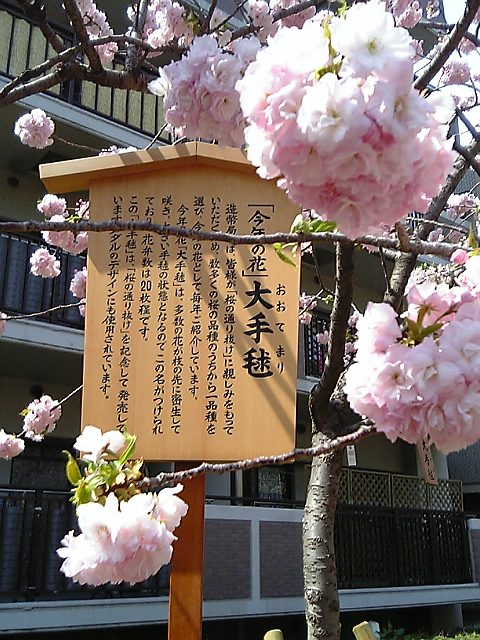 「今年の花」大手毬
おおてまり
造幣局では皆様が「桜の通り抜け」に親しみをもって
いただくため、数多くの桜の品種のうちから一品種を
選び、今年の花として毎年ご紹介しています。
今年の花「大手毬」は、多数の花が枝の先に密生して
咲き、大きい手毬の状態となるので、この名がつけられ
ており、花弁数は20枚程です。
この「手毬」は、「桜の通り抜け」を記念して発売して
いますメダルのデザインにも使用されています。